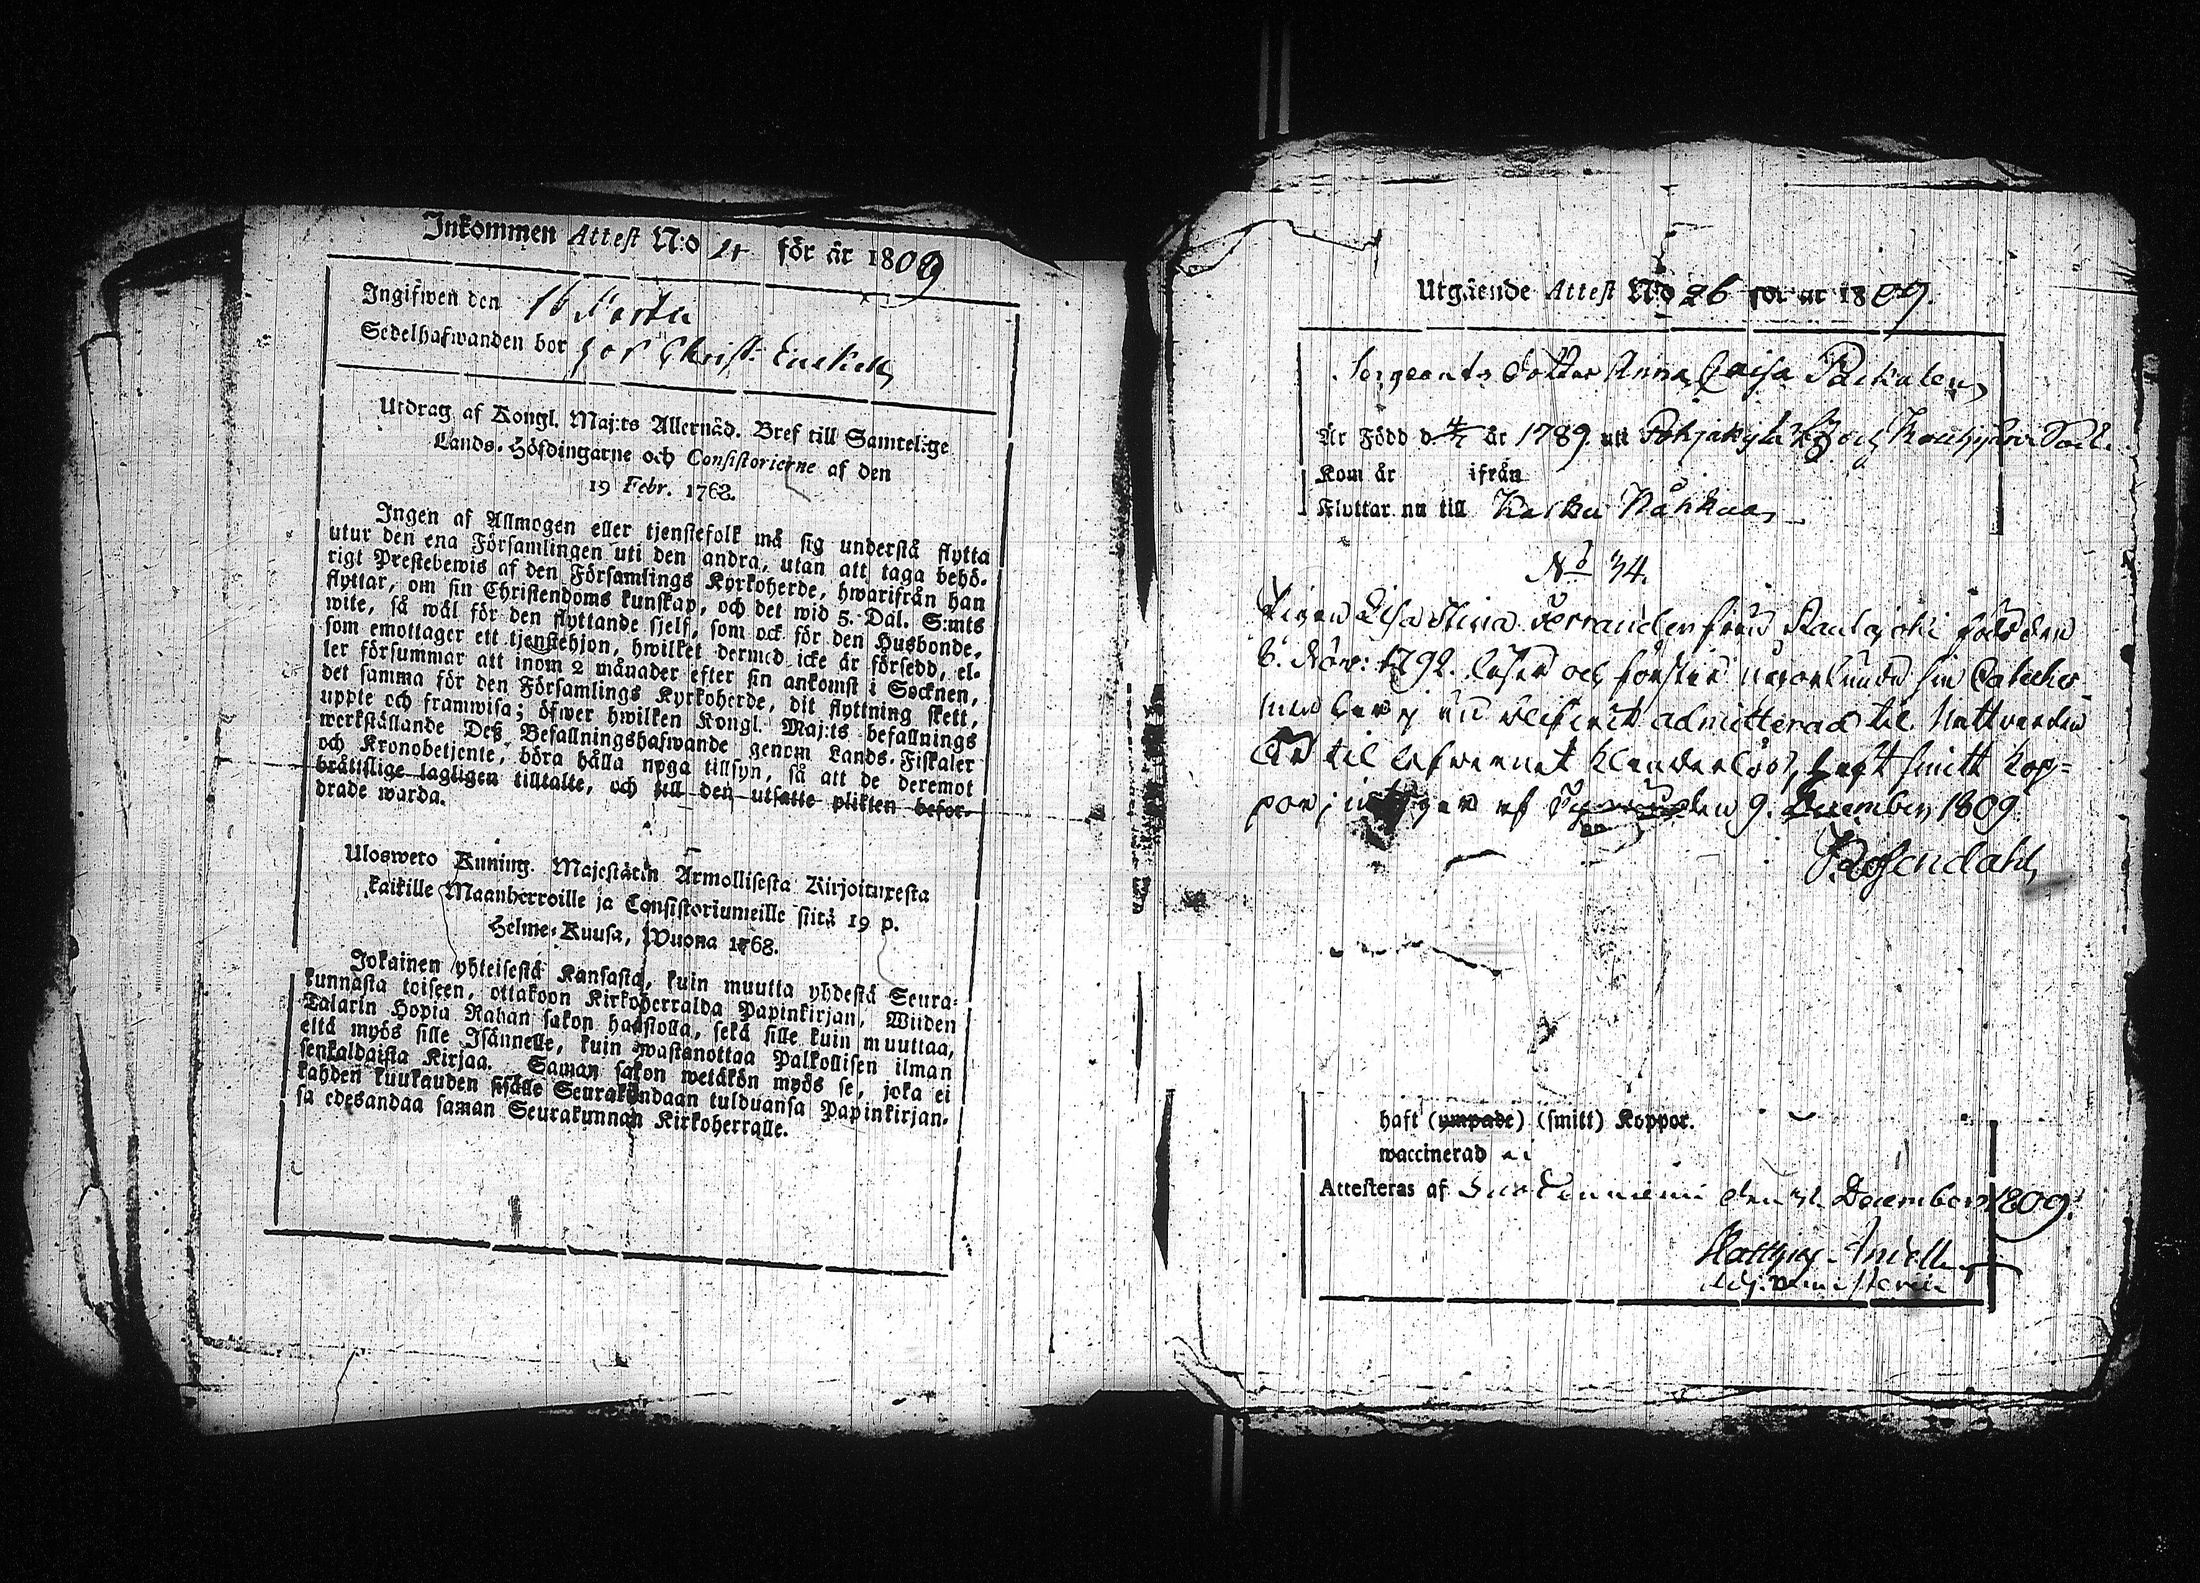 Inkommen Attest N:o för år 1809
Ingifwen den 16
Sedelhafwanden bor hos Christ.
Utdrag af Kongl. Maj:ts Allernåd. Bref till Samtelige
Lands-Höfdingarne och Consistorierne af den
19 Febr. 1768.
Ingen af Allmogen eller tjenstefolk må sig understå flytta
utur den ena Församlingen uti den andra, utan att taga behö-
rigt Prestebewis af den Församlings Kyrkoherde, hwarifrån han
flyttar, om sin Christendoms kunskap, och det wid 5. Dal. S:mts
wite, så wäl för den flyttande sjelf, som ock för den Husbonde,
som emottager ett tjenstehjon, hwilket dermed icke är försedd, el-
ler försummar att inom 2 månader efter sin ankomst i Socknen,
det samma för den Församlings Kyrkoherde, dit flyttning skett,
uppte och framwisa; öfwer hwilken Kongl. Maj:ts befallnings
werkställande Deß Befallningshafwande genom Lands-Fiskaler
och Kronobetjente, böra hålla noga tillsyn, så att de deremot
bråtislige lagligen tilltalte, och till den utsatte plikten befor-
drade warda.
Ulosweto Kuning. Majestätin Armollisesta Kirjoituxesta
kaikille Maanherroille ja Consistoriumeille siitä 19 p.
Helme-Kuusa, Wuona 1768.
Jokainen yhteisestä Kansasta, kuin muutta yhdestä Seura-
kunnasta toiseen, ottakoon Kirkoherralda Papinkirjan, Wiiden
Talarin Hopia Rahan sakon haastolla, sekä sille kuin muuttaa,
että myös sille Isännelle, kuin wastanottaa Palkollisen ilman
senkaldaista Kirjaa. Saman sakon wetäkön myös se, joka ei
kahden kuukauden sisälle Seurakundaan tulduansa Papinkirjan-
sa edesandaa saman Seurakunnan Kirkoherralle.
Utgående Attest N:o 26 för år 1809.
Sergeants Dotter Anna Caisa
Är Född d 4/7 år 1789 uti Pohjakylä och Sock.
Kom år ifrån
Flyttar nu till Karku
No 34.
Pigan Lisa Stina från född den
6. Nov: 1792. läser och förstår sin Cateches
admitterad til Nattvarden
til lefvernet klanderlös, haft smitt kop-
por; af den 9. December 1809
Rosendahl
haft (ympade) (smitt) Koppor.
waccinerad
Attesteras af den 31 December 1809.
Matthias
Adj. Ministerii